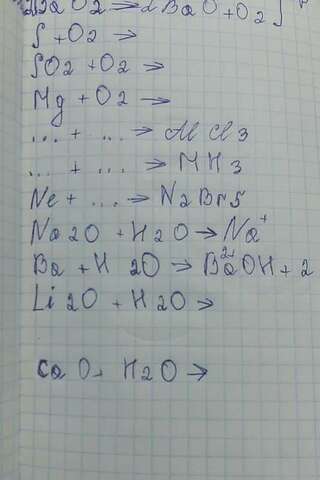 2BaO2 → 2BaO + O2
S + O2 →
SO2 + O2 →
Mg + O2 →
... + ... → AlCl3
... + ... → MH3
Ne + ... → N2Br5
Na2O + H2O → Na⁺
Ba + H2O → Ba²⁺OH + 2
Li2O + H2O →
CaO + H2O →